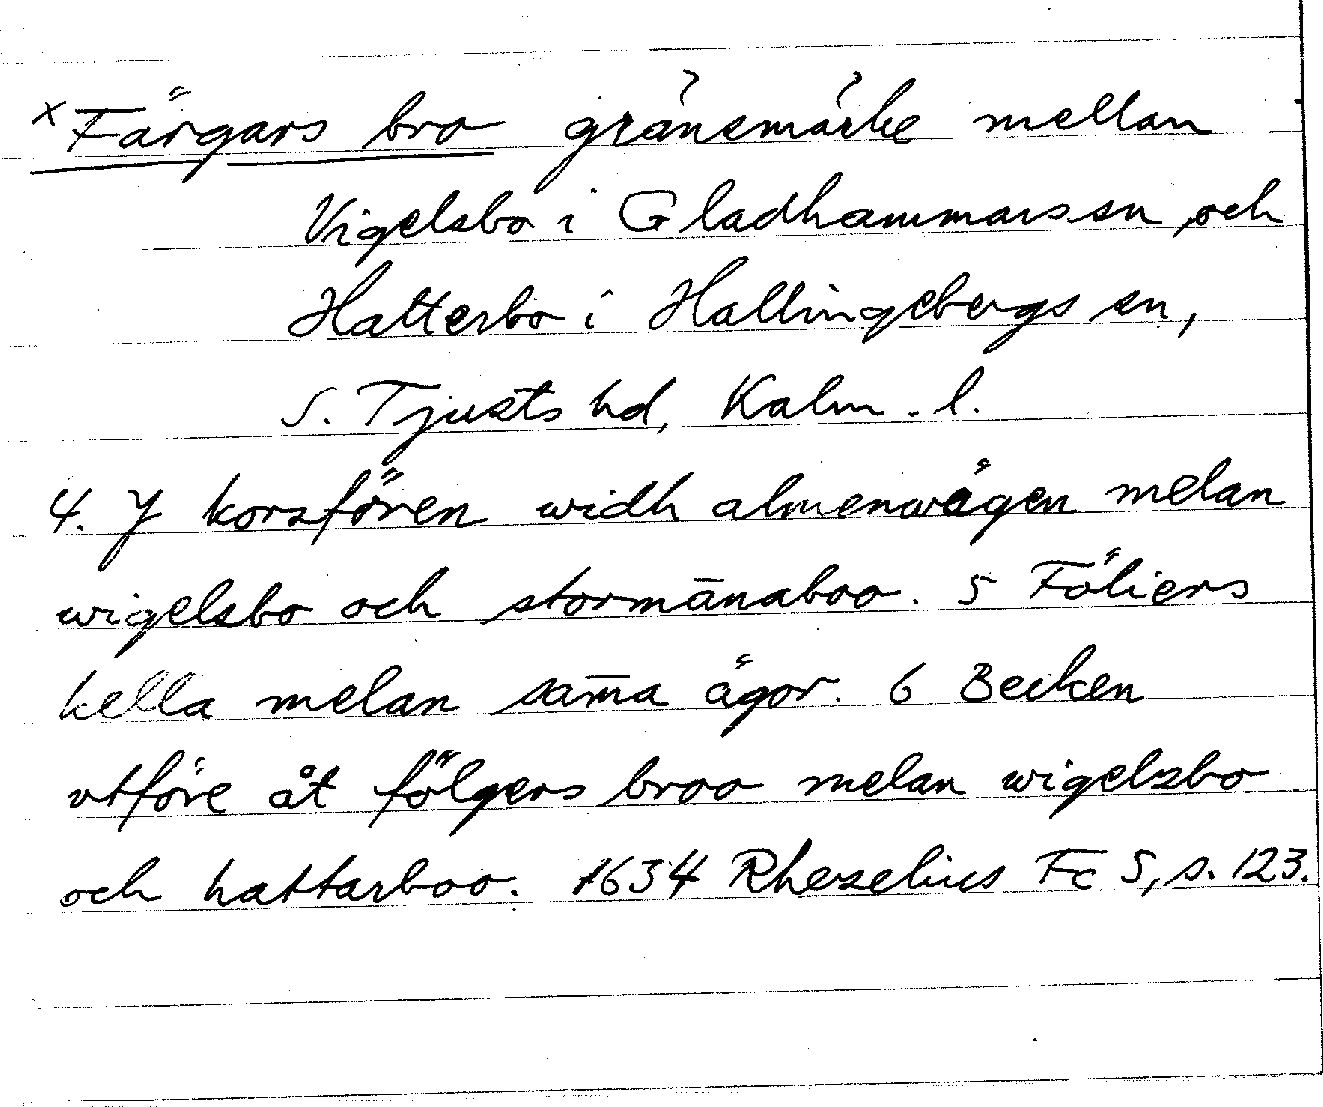 x Färgars bro gränsmärke mellan
Vigelsbo i Gladhammars sn, och
Hatterbo i Hallingebergs sn,
S. Tjusts hd, Kalm. l.
4. Y korsfören widh almenwägen melan
wigelsbo och stormānaboo. 5 Föliers
kella melan sam̄a ägor. 6 Becken
vtföre åt fölgers broo melan wigelsbo
och hattarboo. 1634 Rhezelius Fc 5, s. 123.